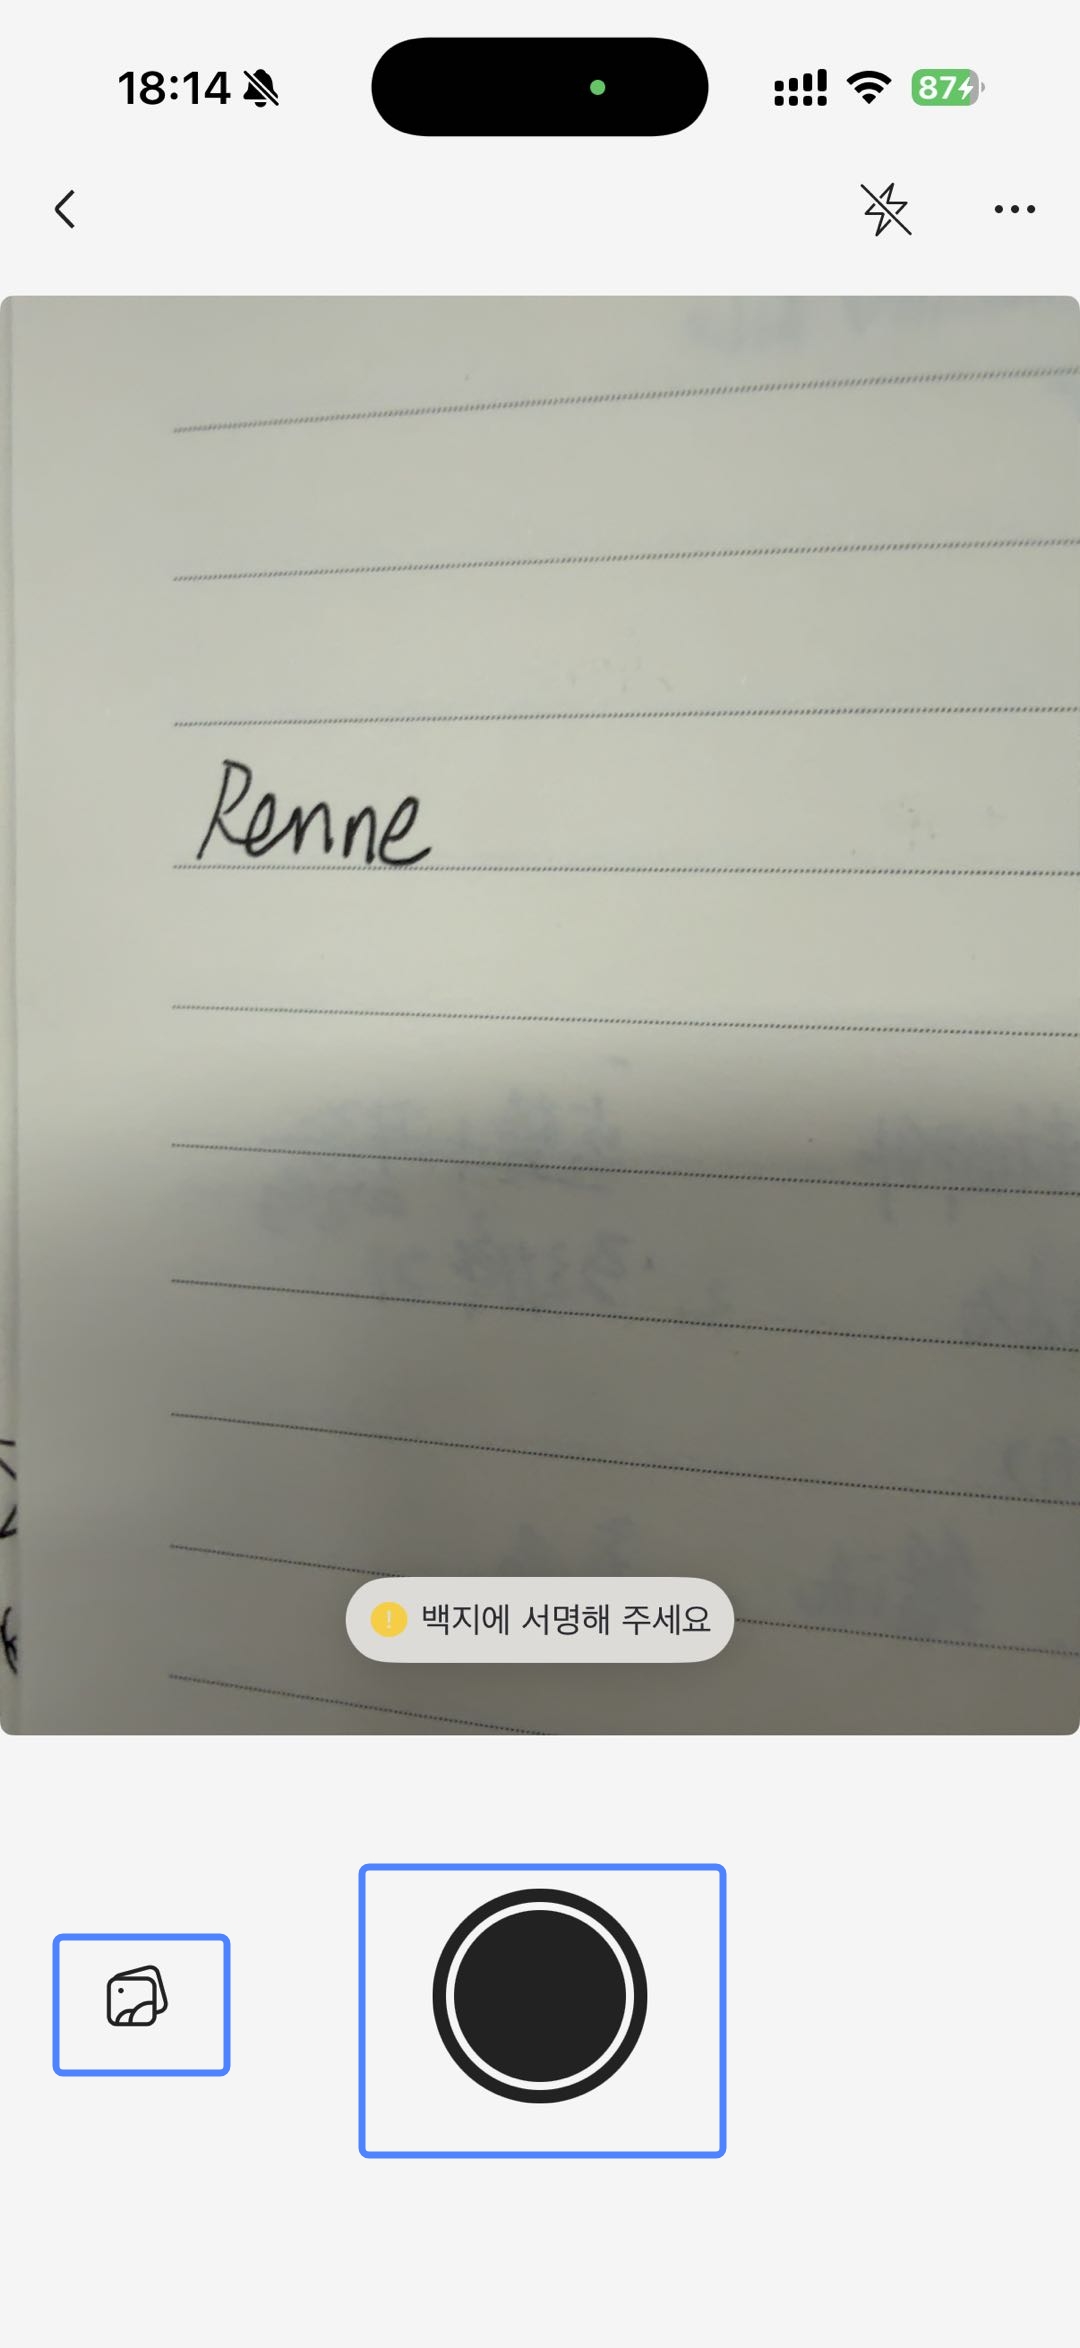 18:14
87
Renne
백지에 서명해 주세요